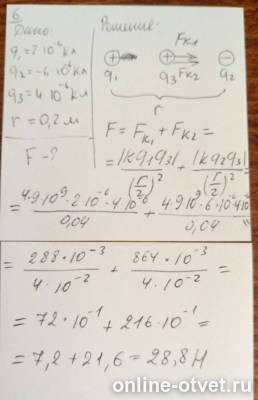 6.
Дано: Решение:
q₁=2·10⁻⁶Кл
q₂=-6·10⁻⁶Кл
q₃=4·10⁻⁶Кл
r=0,2м
F-?
+ + Fк₁ −
q₁ q₃ Fк₂ q₂
r
F=Fк₁+Fк₂=
=|kq₁q₃|/(r/2)²+|kq₂q₃|/(r/2)²
=4·9·10⁹·2·10⁻⁶·4·10⁻⁶/0,04+4·9·10⁹·6·10⁻⁶·4·10⁻⁶/0,04=
=288*10⁻³/4·10⁻²+864*10⁻³/4·10⁻²=
=72*10⁻¹+216·10⁻¹=
=7,2+21,6=28,8Н
online-otvet.ru